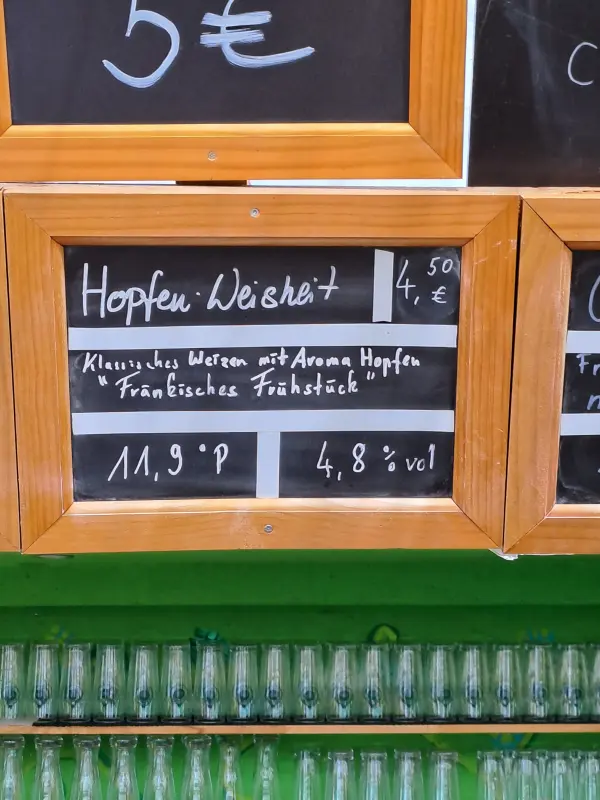 5€
C
Hopfen-Weisheit
4,50 €
Klassisches Weizen mit Aroma Hopfen
"Fränkisches Frühstück"
11,9 °P
4,8 % vol
Fr